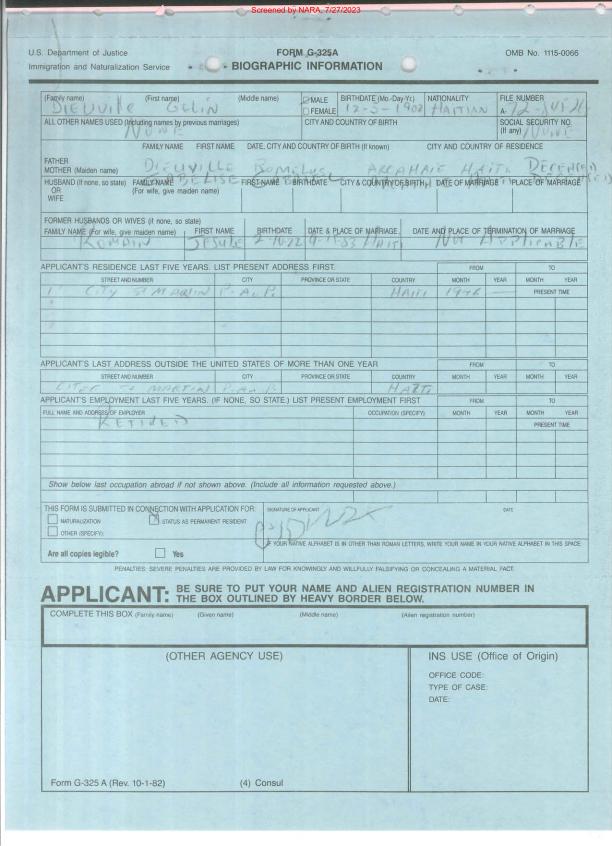 Screened by NARA, 7/27/2023
U.S. Department of Justice
Immigration and Naturalization Service
FORM G-325A
BIOGRAPHIC INFORMATION
OMB No. 1115-0066
(Family name) (First name) (Middle name) MALE FEMALE BIRTHDATE (Mo.-Day-Yr.) NATIONALITY FILE NUMBER
DIEUVILLE GELIN 12-5-1902 HAITIAN A-72-
ALL OTHER NAMES USED (Including names by previous marriages) CITY AND COUNTRY OF BIRTH SOCIAL SECURITY NO. (If any)
NONE NONE
FAMILY NAME FIRST NAME DATE, CITY AND COUNTRY OF BIRTH (If known) CITY AND COUNTRY OF RESIDENCE
FATHER DIEUVILLE ARCAHAIE HAITI DECEASED
MOTHER (Maiden name)
HUSBAND (If none, so state) OR WIFE FAMILY NAME (For wife, give maiden name) FIRST NAME BIRTHDATE CITY & COUNTRY OF BIRTH DATE OF MARRIAGE PLACE OF MARRIAGE
FORMER HUSBANDS OR WIVES (if none, so state)
FAMILY NAME (For wife, give maiden name) FIRST NAME BIRTHDATE DATE & PLACE OF MARRIAGE DATE AND PLACE OF TERMINATION OF MARRIAGE
ROMAIN HAITI NOT APPLICABLE
APPLICANT'S RESIDENCE LAST FIVE YEARS. LIST PRESENT ADDRESS FIRST. FROM TO
STREET AND NUMBER CITY PROVINCE OR STATE COUNTRY MONTH YEAR MONTH YEAR
CITY ST MARTIN P.A.P. HAITI PRESENT TIME
APPLICANT'S LAST ADDRESS OUTSIDE THE UNITED STATES OF MORE THAN ONE YEAR FROM TO
STREET AND NUMBER CITY PROVINCE OR STATE COUNTRY MONTH YEAR MONTH YEAR
CITEE ST MARTIN P.A.P. HAITI
APPLICANT'S EMPLOYMENT LAST FIVE YEARS. (IF NONE, SO STATE.) LIST PRESENT EMPLOYMENT FIRST FROM TO
FULL NAME AND ADDRESS OF EMPLOYER OCCUPATION (SPECIFY) MONTH YEAR MONTH YEAR
RETIRED PRESENT TIME
Show below last occupation abroad if not shown above. (Include all information requested above.)
THIS FORM IS SUBMITTED IN CONNECTION WITH APPLICATION FOR: SIGNATURE OF APPLICANT DATE
NATURALIZATION STATUS AS PERMANENT RESIDENT
OTHER (SPECIFY):
Are all copies legible? Yes
IF YOUR NATIVE ALPHABET IS IN OTHER THAN ROMAN LETTERS, WRITE YOUR NAME IN YOUR NATIVE ALPHABET IN THIS SPACE
PENALTIES: SEVERE PENALTIES ARE PROVIDED BY LAW FOR KNOWINGLY AND WILLFULLY FALSIFYING OR CONCEALING A MATERIAL FACT.
APPLICANT: BE SURE TO PUT YOUR NAME AND ALIEN REGISTRATION NUMBER IN
THE BOX OUTLINED BY HEAVY BORDER BELOW.
COMPLETE THIS BOX (Family name) (Given name) (Middle name) (Alien registration number)
(OTHER AGENCY USE) INS USE (Office of Origin)
OFFICE CODE:
TYPE OF CASE:
DATE:
Form G-325 A (Rev. 10-1-82) (4) Consul